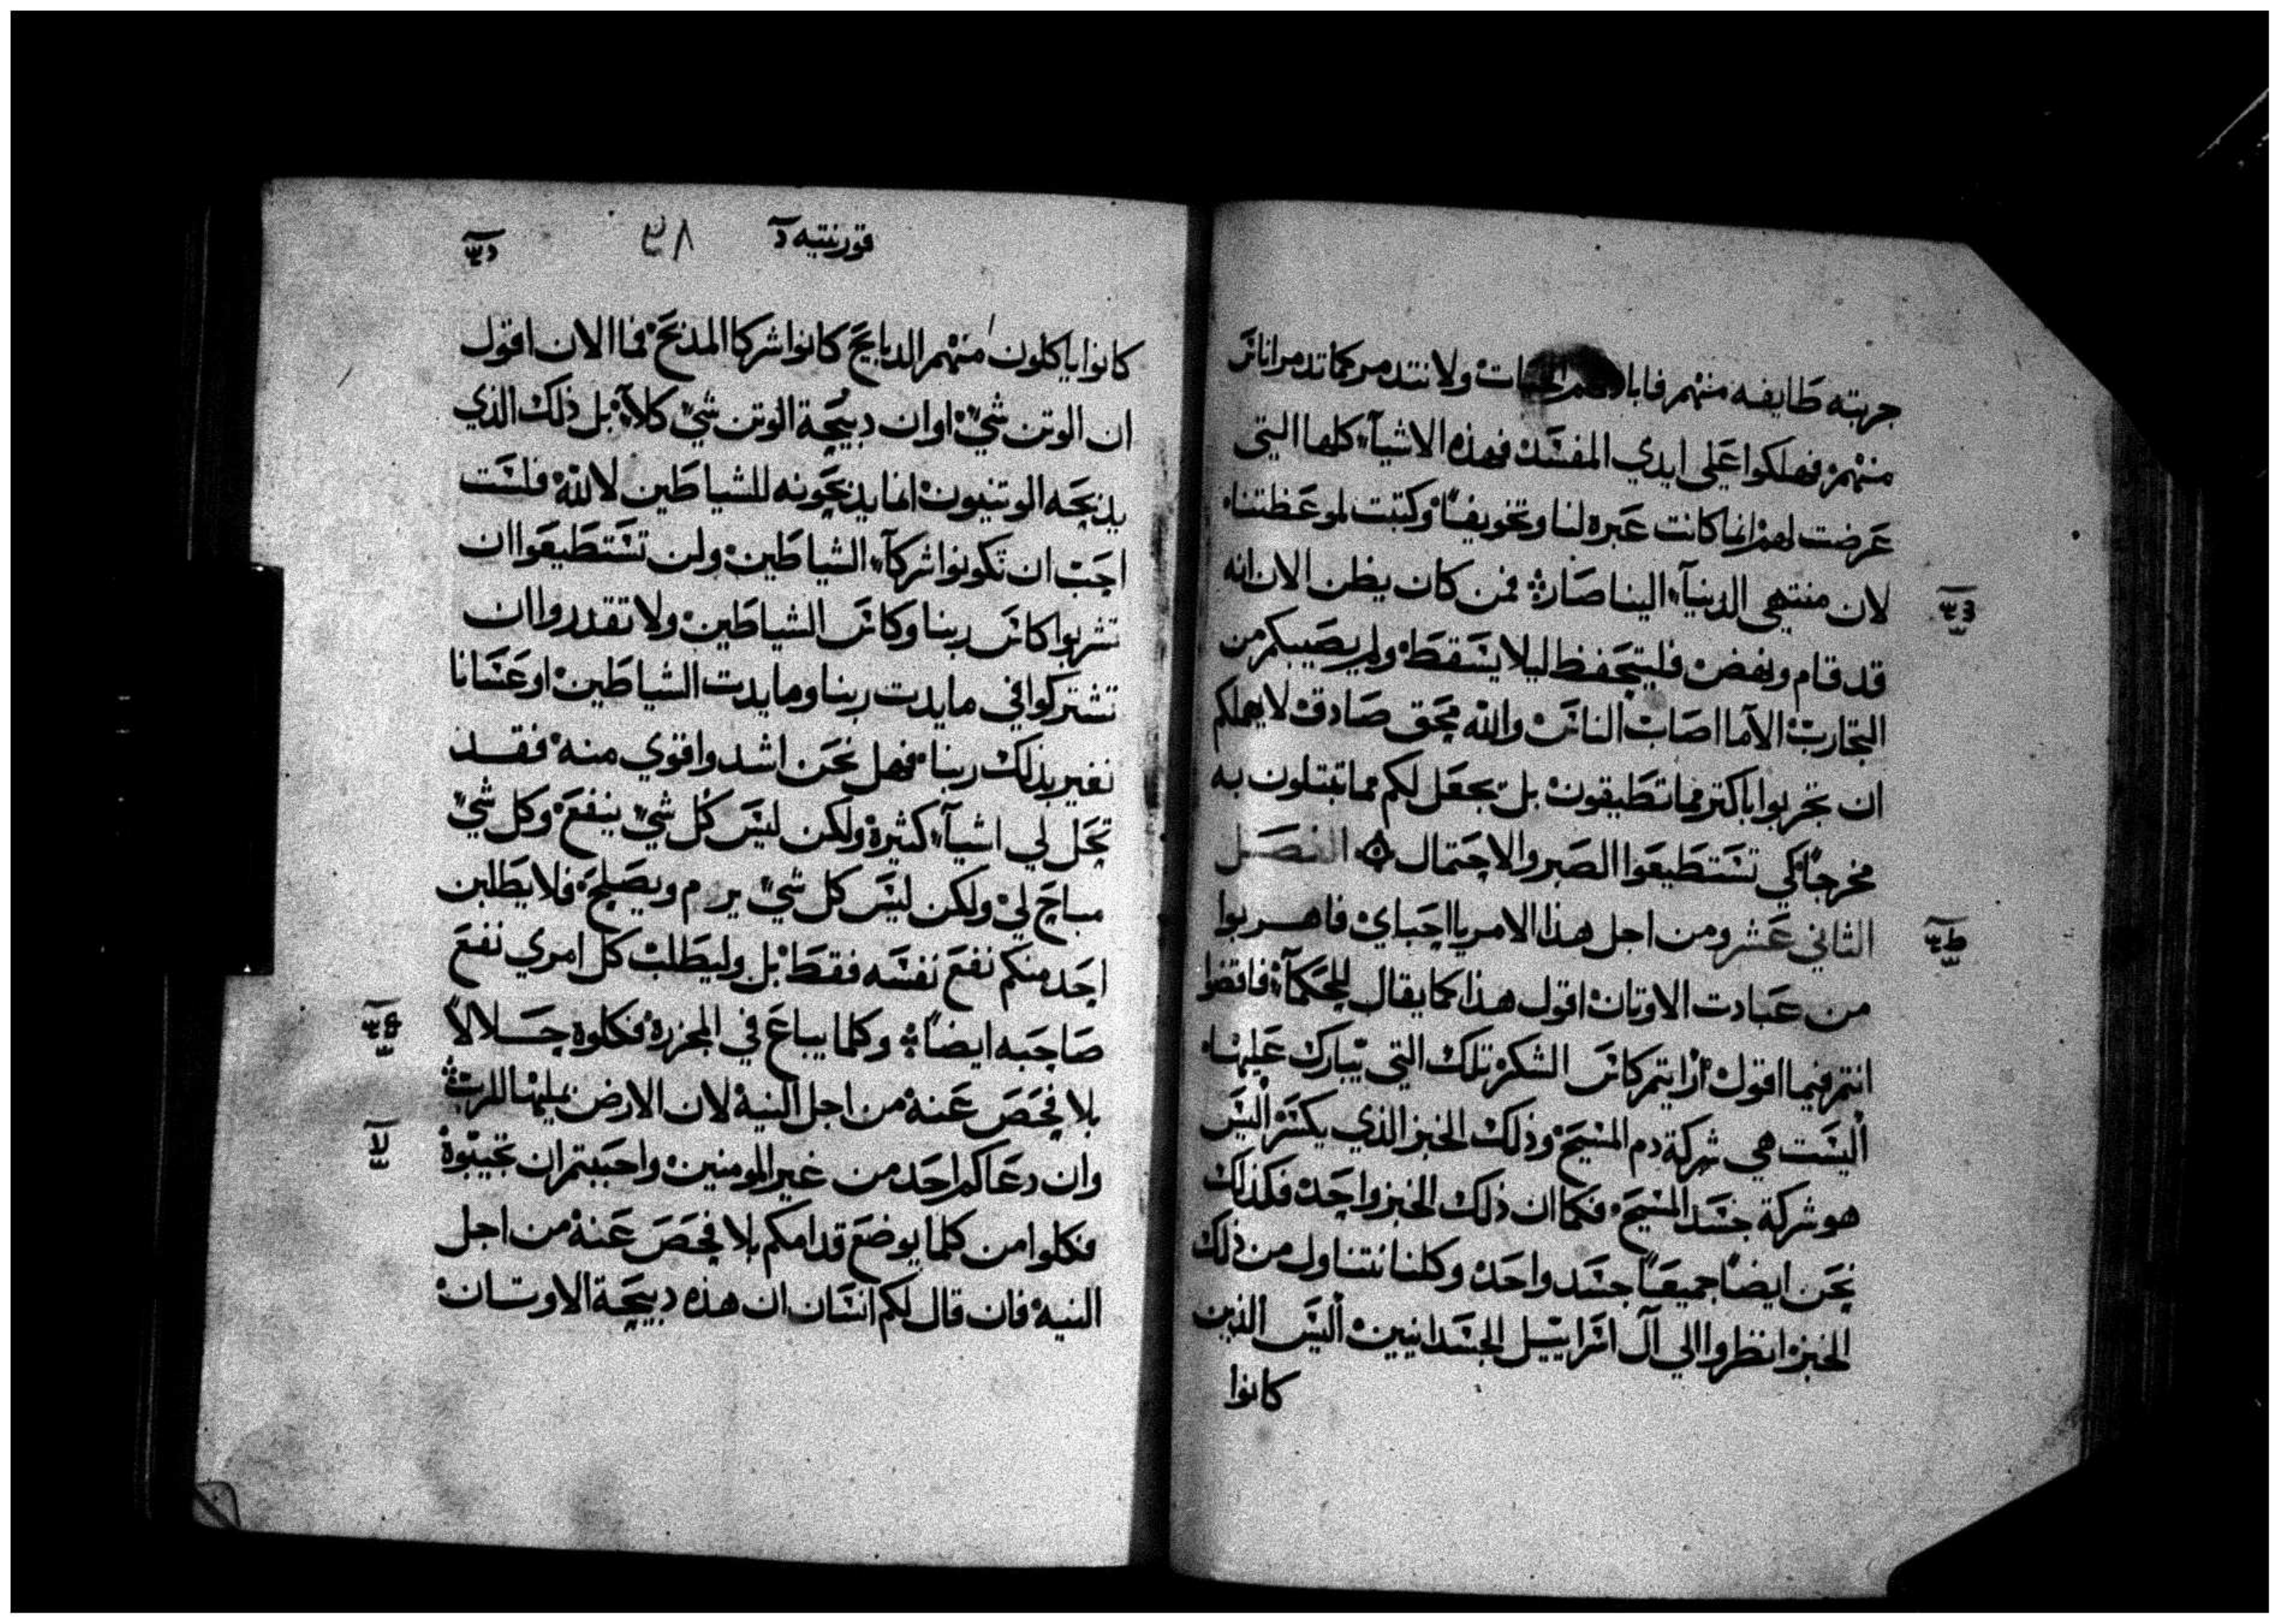 جربته طايفه منهم فابادهم الحيات ولا نتدمر كما تدمر اناس
منهم فهلكوا على ايدي المفسد فهذه الاشيآء كلها التي
عرضت لهم انما كانت عبره لنا وتخويفاً وكتبت لموعظتنا
لان منتهي الدنيآء الينا صار فمن كان يظن الان انه
قد قام ونهض فليتحفظ ليلا يسقط ولم يصيبكم من
التجارب الا ما اصاب الناس والله محق صادق لا يهملكم
ان تجربوا باكتر مما تطيقون بل يجعل لكم مما تبتلون به
مخرجاً كي تستطيعوا الصبر والاحتمال الفصل
الثاني عشر ومن اجل هذا الامر يا احباي فاهربوا
من عبادت الاوتان اقول هذا كما يقال للحكمآء فاقضوا
انتم فيما اقول ارايتم كاس الشكر تلك التي يتبارك عليها
أليست هي شركة دم المسيح وذلك الخبز الذي يكسر أليس
هو شركة جسد المسيح فكما ان ذلك الخبز واحد فكذلك
نحن ايضاً جميعاً جسد واحد وكلنا نتناول من ذلك
الخبز انظروا الي آل اسراييل الجسدانيين أليس الذين
كانوا
قورنتيه
كانوا ياكلون منهم الدبايح كانوا شركا المدبح فما الان اقول
ان الوتن شيً او ان دبيحة الوتن شيً كلآ بل ذلك الذي
يدبحه الوتنيون انما يدبحونه للشياطين لا لله فلست
احب ان تكونوا شركآء الشياطين ولن تستطيعوا ان
تشربوا كاس ربنا وكاس الشياطين ولا تقدروا ان
تشتركوا في مايدت ربنا ومايدت الشياطين او عسانا
نغير بذلك ربنا فهل نحن اشد واقوي منه فقد
تحل لي اشيآء كثيرة ولكن ليس كل شيً ينفع وكل شيً
مباح لي ولكن ليس كل شيً يرم ويصلح فلا يطلبن
احد منكم نفع نفسه فقط بل وليطلب كل امري نفع
صاحبه ايضاً وكلما يباع في المجزرة فكلوه حلالاً
بلا فحص عنه من اجل النية لان الارض بمليها للرب
وان دعاكم احد من غير المومنين واحببتم ان تجيبوة
فكلوا من كلما يوضع قدامكم بلا فحص عنه من اجل
النيه فان قال لكم انسان ان هذه دبيحة الاوتان